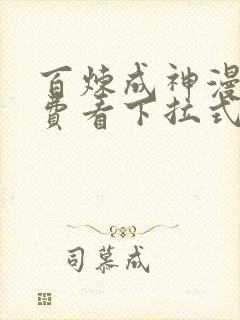 百炼成神漫
费看下拉式
司慕成